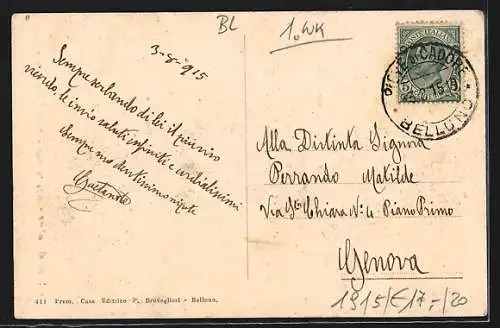 BL
1. WK
3-8-915
Sempre serbando di lei il più vivo
ricordo, le invio saluti infiniti e cordialissimi
Sempre suo devotissimo nipote
Gaetano
POSTE ITALIANE
PIEVE DI CADORE
BELLUNO
Alla Distinta Signora
Perrando Matilde
Via Sta Chiara No 4 Piano Primo
Genova
1915/€17,-/20
411 Prem. Casa Editrice P. Breveglieri - Belluno.